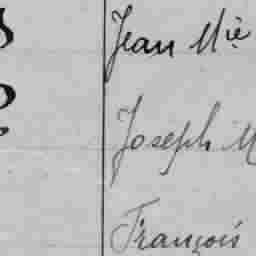 Jean Mie
Joseph M
François